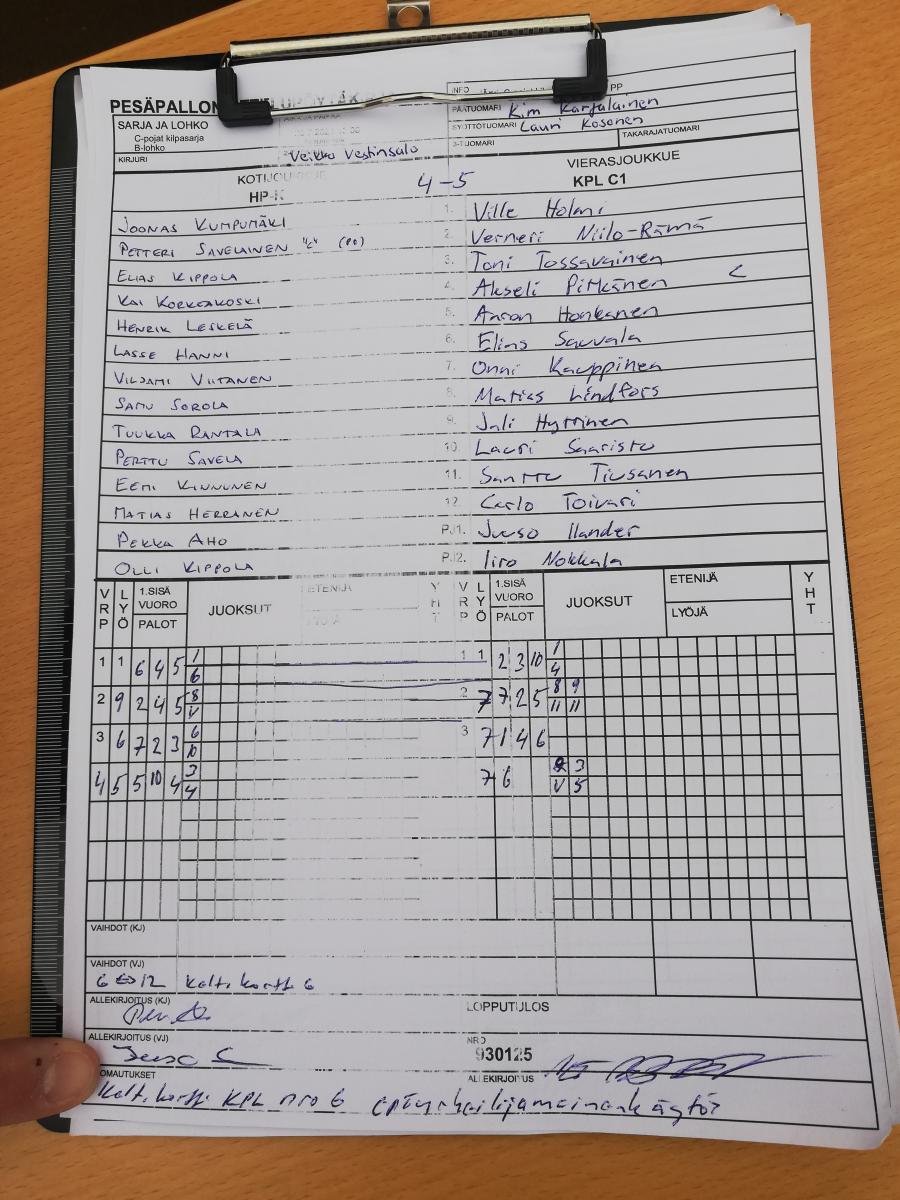 PESÄPALLON
INFO PP
PÄÄTUOMARI Kim Karjalainen
SYÖTTÖTUOMARI Lauri Kosonen
3-TUOMARI TAKARAJATUOMARI
SARJA JA LOHKO
C-pojat kilpasarja
B-lohko
KIRJURI Veikko Vestinsalo
KOTIJOUKKUE 4-5 VIERASJOUKKUE
HP-K KPL C1
JOONAS KUMPUMÄKI 1. Ville Holmi
PETTERI SAVELAINEN "C" (PO) 2. Verneri Niilo-Rämä
ELIAS KIPPOLA 3. Toni Tossavainen
KAI KORKEAKOSKI 4. Akseli Pitkänen C
HENRIK LESKELÄ 5. Anton Honkanen
LASSE HANNI 6. Elias Sauvala
VILJAMI VIITANEN 7. Onni Kauppinen
SAMU SOROLA 8. Matias Lindfors
TUUKKA RANTALA 9. Jali Hyttinen
PERTTU SAVELA 10. Lauri Saaristo
EEMI KINNUNEN 11. Santtu Tiusanen
MATIAS HERRANEN 12. Carlo Toivari
PEKKA AHO PJ1. Juuso Ilander
OLLI KIPPOLA PJ2. Iiro Nokkala
VRP LYÖ 1.SISÄ VUORO PALOT JUOKSUT ETENIJÄ LYÖJÄ YHT VRP LYÖ 1.SISÄ VUORO PALOT JUOKSUT ETENIJÄ LYÖJÄ YHT
1 1 6 4 5 1 1 1 2 3 10 1
6 4
2 9 2 4 5 8 2 7 7 2 5 8 9
V 11 11
3 6 7 2 3 6 3 7 1 4 6
10
4 5 5 10 4 3 7 6 2 3
4 V 5
VAIHDOT (KJ)
VAIHDOT (VJ)
6 ⇔ 12 Kelt. kortti 6
ALLEKIRJOITUS (KJ) LOPPUTULOS
ALLEKIRJOITUS (VJ) NRO
930125
ALLEKIRJOITUS
HUOMAUTUKSET
Kelt. kortti KPL nro 6 epäurheilijamainen käytös